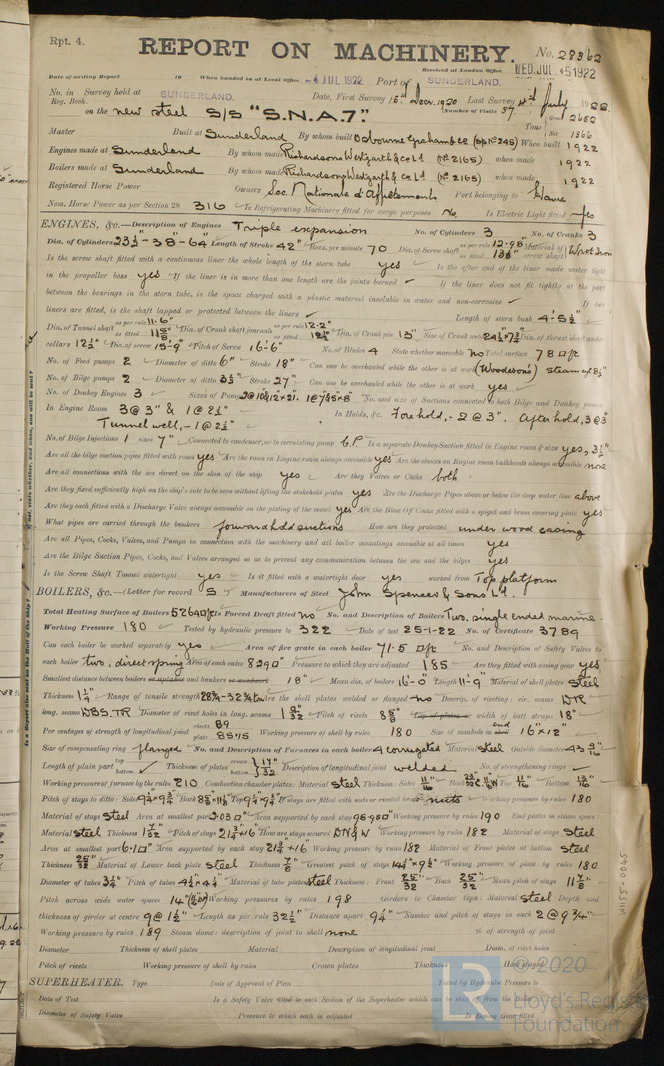 Rpt. 4.
REPORT ON MACHINERY.
No. 28362
Date of writing Report 19 When handed in at Local Office 4 JUL 1922 Port of SUNDERLAND. Received at London Office WED. JUL. 5 1922
No. in Survey held at SUNDERLAND. Date, First Survey 15th Decr. 1920 Last Survey 4th July 1922
Reg. Book. Number of Visits 57
on the new steel S/S "S.N.A.7." Tons Gross 2652 Net 1566
Master Built at Sunderland By whom built Osbourne Graham & Co (S.S. No 245) When built 1922
Engines made at Sunderland By whom made Richardsons Westgarth & Co Ld (No 2165) when made 1922
Boilers made at Sunderland By whom made Richardsons Westgarth & Co Ld (No 2165) when made 1922
Registered Horse Power Owners Soc. Nationale d'Affretements Port belonging to Havre
Nom. Horse Power as per Section 28 316 Is Refrigerating Machinery fitted for cargo purposes No. Is Electric Light fitted Yes
ENGINES, &c.—Description of Engines Triple expansion No. of Cylinders 3 No. of Cranks 3
Dia. of Cylinders 23½"-38-64" Length of Stroke 42" Revs. per minute 70 Dia. of Screw shaft as per rule 12.98" as fitted 13⅛" Material of screw shaft Wrot Iron
Is the screw shaft fitted with a continuous liner the whole length of the stern tube yes Is the after end of the liner made water tight
in the propeller boss yes If the liner is in more than one length are the joints burned ✓ If the liner does not fit tightly at the part
between the bearings in the stern tube, is the space charged with a plastic material insoluble in water and non-corrosive ✓ If two
liners are fitted, is the shaft lapped or protected between the liners ✓ Length of stern bush 4'-5½"
Dia. of Tunnel shaft as per rule 11.6" as fitted 11⅝" Dia. of Crank shaft journals as per rule 12.2" as fitted 12½" Dia. of Crank pin 13" Size of Crank webs 24½"x7¾" Dia. of thrust shaft under
collars 12½" Dia. of screw 15'-9" Pitch of Screw 16'-6" No. of Blades 4 State whether moveable no Total surface 78 □ft
No. of Feed pumps 2 Diameter of ditto 6" Stroke 18" Can one be overhauled while the other is at work (Woodeson's) steam of 8½"
No. of Bilge pumps 2 Diameter of ditto 3½" Stroke 27" Can one be overhauled while the other is at work yes
No. of Donkey Engines 3 Sizes of Pumps No. and size of Suctions connected to both Bilge and Donkey pumps
In Engine Room 3 @ 3" & 1 @ 2½" In Holds, &c. Forehold,- 2 @ 3". Afterhold, 3 @ 3"
Tunnel well,- 1 @ 2½"
No. of Bilge Injections 1 sizes 7" Connected to condenser, or to circulating pump C.P. Is a separate Donkey Suction fitted in Engine room & size yes, 3½"
Are all the bilge suction pipes fitted with roses yes Are the roses in Engine room always accessible yes Are the sluices on Engine room bulkheads always accessible none
Are all connections with the sea direct on the skin of the ship yes Are they Valves or Cocks both
Are they fixed sufficiently high on the ship's side to be seen without lifting the stokehold plates yes Are the Discharge Pipes above or below the deep water line above
Are they each fitted with a Discharge Valve always accessible on the plating of the vessel yes Are the Blow Off Cocks fitted with a spigot and brass covering plate yes
What pipes are carried through the bunkers forward hold suctions How are they protected under wood casing
Are all Pipes, Cocks, Valves, and Pumps in connection with the machinery and all boiler mountings accessible at all times yes
Are the Bilge Suction Pipes, Cocks, and Valves arranged so as to prevent any communication between the sea and the bilges yes
Is the Screw Shaft Tunnel watertight yes Is it fitted with a watertight door yes worked from Top platform
BOILERS, &c.—(Letter for record S) Manufacturers of Steel John Spencer & Sons Ld.
Total Heating Surface of Boilers 5264 □ft Is Forced Draft fitted no No. and Description of Boilers Two. single ended marine
Working Pressure 180 Tested by hydraulic pressure to 322 Date of test 25-1-22 No. of Certificate 3789
Can each boiler be worked separately yes Area of fire grate in each boiler 71.5 □ft No. and Description of Safety Valves to
each boiler two, direct spring Area of each valve 8.29 □" Pressure to which they are adjusted 185 Are they fitted with easing gear yes
Smallest distance between boilers or uptakes and bunkers or woodwork 18" Mean dia. of boilers 16'-0" Length 11'-9" Material of shell plates Steel
Thickness 1¼" Range of tensile strength 28¾-32¾ tons Are the shell plates welded or flanged no Descrip. of riveting: cir. seams DR
long. seams DBS. TR Diameter of rivet holes in long. seams 1 9/32 Pitch of rivets 8⅝" Lap of plates or width of butt straps 18"
Per centages of strength of longitudinal joint rivets 89 plate 85.45 Working pressure of shell by rules 180 Size of manhole in end 16"x12"
Size of compensating ring flanged No. and Description of Furnaces in each boiler 4 corrugated Material Steel Outside diameter 43 9/16"
Length of plain part top bottom ✓ Thickness of plates crown bottom 17/32 Description of longitudinal joint welded No. of strengthening rings ✓
Working pressure of furnace by the rules 210 Combustion chamber plates: Material Steel Thickness: Sides 11/16" Back Top 11/16" Bottom 13/16"
Pitch of stays to ditto: Sides Back Top If stays are fitted with nuts or riveted heads nuts Working pressure by rules 180
Material of stays Steel Area at smallest part 2.03 □" Area supported by each stay Working pressure by rules 190 End plates in steam space:
Material Steel Thickness 1 1/32 Pitch of stays 21¾x16" How are stays secured DN&W Working pressure by rules 182 Material of stays Steel
Area at smallest part 6.10" Area supported by each stay 21¾"x16 Working pressure by rules 182 Material of Front plates at bottom Steel
Thickness 25/32" Material of Lower back plate Steel Thickness 7/8" Greatest pitch of stays Working pressure of plate by rules 180
Diameter of tubes 3¼" Pitch of tubes 4½"x4½" Material of tube plates Steel Thickness: Front 25/32 Back 25/32 Mean pitch of stays 11⅞"
Pitch across wide water spaces 14" Working pressures by rules 198 Girders to Chamber tops: Material Steel Depth and
thickness of girder at centre 9 @ 1½" Length as per rule 32½" Distance apart 9¼" Number and pitch of stays in each 2 @ 9¾"
Working pressure by rules 189 Steam dome: description of joint to shell none % of strength of joint
Diameter Thickness of shell plates Material Description of longitudinal joint Diam. of rivet holes
Pitch of rivets Working pressure of shell by rules Crown plates Thickness How stayed
SUPERHEATER. Type Date of Approval of Plan Tested by Hydraulic Pressure to
Date of Test Is a Safety Valve fitted to each Section of the Superheater which can be shut off from the Boiler
Diameter of Safety Valve Pressure to which each is adjusted Is Easing Gear fitted
W1155-0045
© 2020
Lloyd's Register
Foundation